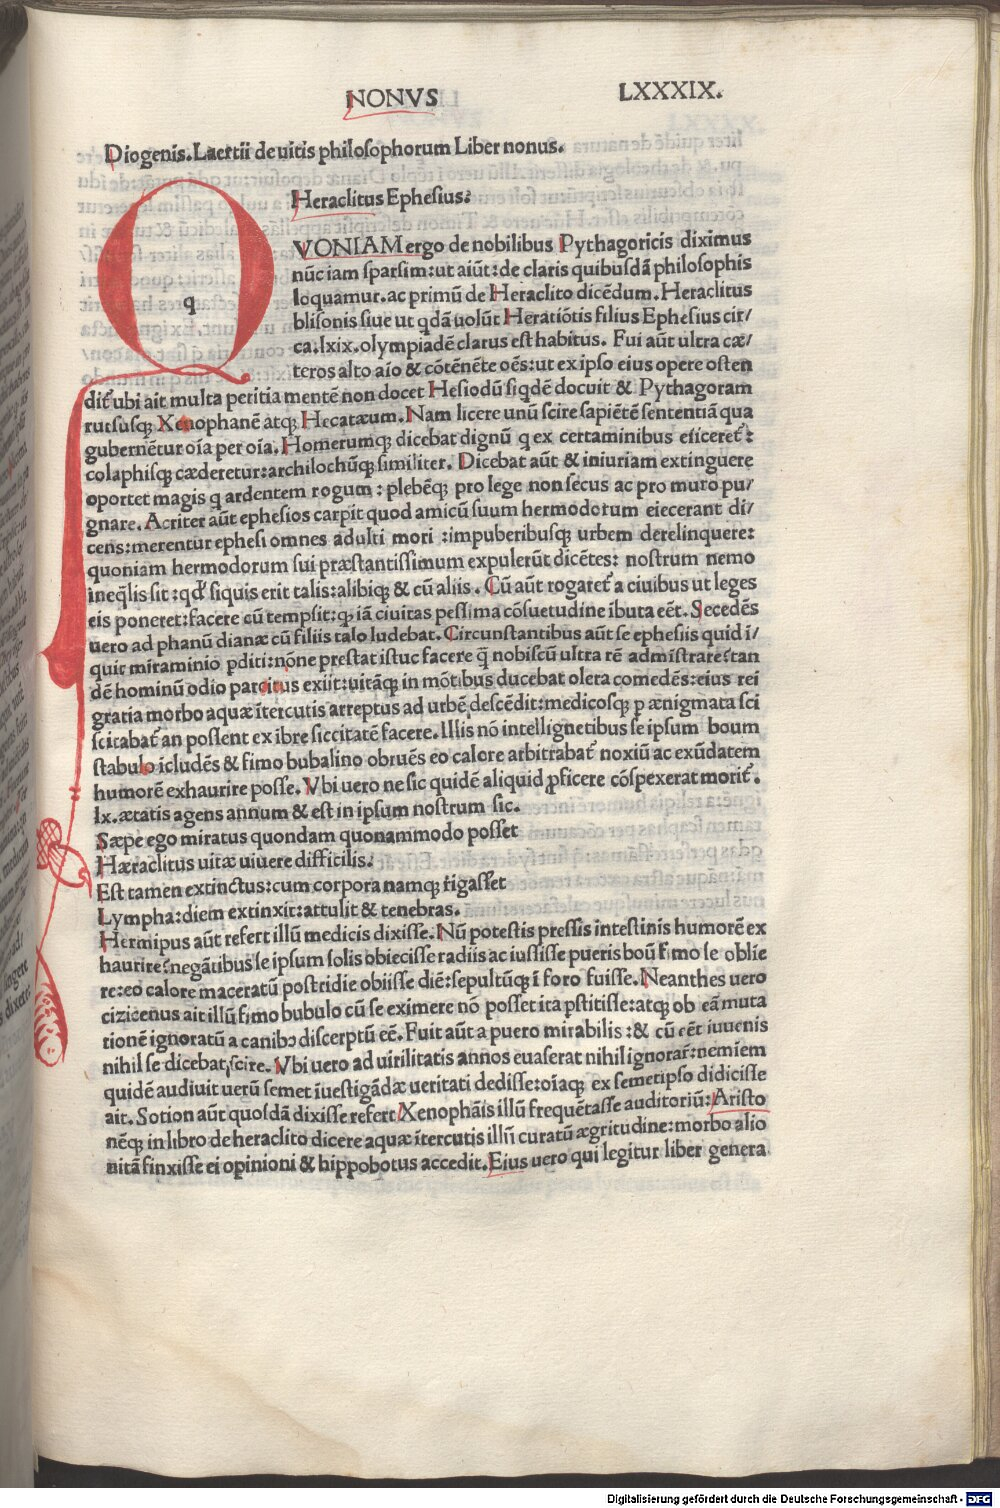 NONVS
LXXXIX.
Diogenis.Laertii de uitis philosophorum Liber nonus.
Heraclitus Ephesius:
q
VONIAM ergo de nobilibus Pythagoricis diximus
nūc iam sparsim:ut aiūt:de claris quibusdā philosophis
loquamur.ac primū de Heraclito dicēdum.Heraclitus
blisonis siue ut qdā uolūt Heratiōtis filius Ephesius cir/
ca.lxix.olympiadē clarus est habitus. Fui aūt ultra cæ/
teros alto aīo & cōtēnēte oēs:ut ex ipso eius opere osten
dit᷑ ubi ait multa peritia mentē non docet Hesiodū siqdē docuit & Pythagoram
rursusq; Xenophanē atq; Hecatæum. Nam licere unū scire sapiētē sententiā qua
gubernētur oīa per oīa. Homerumq; dicebat dignū q ex certaminibus eiiceret᷑:
colaphisq; cæderetur:archilochūq; similiter. Dicebat aūt & iniuriam extinguere
oportet magis q ardentem rogum: plebēq; pro lege non secus ac pro muro pu/
gnare. Acriter aūt ephesios carpit quod amicū suum hermodorum eiecerant di/
cens:merentur ephesi omnes adulti mori :impuberibusq; urbem derelinquere:
quoniam hermodorum sui præstantissimum expulerūt dicētes: nostrum nemo
ineq̄lis sit :qd' siquis erit talis:alibiq; & cū aliis . Cū aūt rogaret᷑ a ciuibus ut leges
eis poneret:facere cū tempsit:q; iā ciuitas pessima cōsuetudine ībuta eēt. Secedēs
uero ad phanū dianæ cū filiis talo ludebat. Circunstantibus aūt se ephesiis quid ī/
quit miraminio pditi:nōne prestat istuc facere q̄ nobiscū ultra rē admistrare:tan
dē hominū odio parcitus exiit:uitāq; in mōtibus ducebat olera comedēs:eius rei
gratia morbo aquæ ītercutis arreptus ad urbē descēdit:medicosq; p ænigmata sci
scitabat᷑ an possent ex ibre siccitatē facere. Illis nō intellignetibus se ipsum boum
stabulo icludēs & fimo bubalino obruēs eo calore arbitrabat᷑ noxiū ac exūdatem
humorē exhaurire posse. Vbi uero ne sic quidē aliquid ꝓficere cōspexerat morit᷑.
lx.ætatis agens annum & est in ipsum nostrum sic.
Sæpe ego miratus quondam quonammodo posset
Hæraclitus uitæ uiuere difficilis:
Est tamen extinctus:cum corpora namq; rigasset
Lympha:diem extinxit:attulit & tenebras.
Hermipus aūt refert illū medicis dixisse. Nū potestis pressis intestinis humorē ex
haurire:negātibus se ipsum solis obiecisse radiis ac iussisse pueris boū fimo se oblie
re:eo calore maceratū postridie obiisse diē:sepultūq; ī foro fuisse. Neanthes uero
cizicenus ait illū fimo bubulo cū se eximere nō posset ita pstitisse:atq; ob eā muta
tionē ignoratū a canibꝰ discerptū eē. Fuit aūt a puero mirabilis:& cū eēt iuuenis
nihil se dicebat scire. Vbi uero ad uirilitatis annos euaserat nihil ignorar᷑:neminem
quidē audiuit uerū semet īuestigādæ ueritati dedisse:oīaq; ex semetipso didicisse
ait. Sotion aūt quosdā dixisse refert Xenophāis illū frequētasse auditoriū:Aristo
nēq; in libro de heraclito dicere aquæ ītercutis illū curatū ægritudine:morbo alio
nitā finxisse ei opinioni & hippobotus accedit. Eius uero qui legitur liber genera
Digitalisierung gefördert durch die Deutsche Forschungsgemeinschaft - DFG